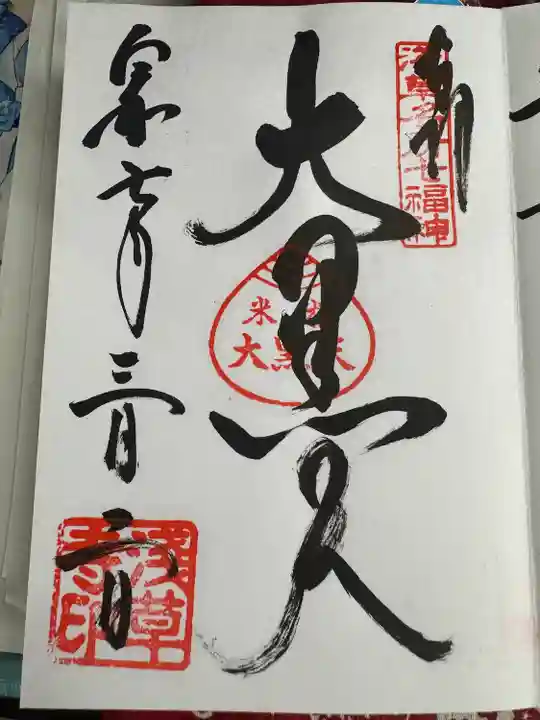 奉拝
浅草名所七福神
大黒天
米びつ
大黒天
三月二日
浅草寺印